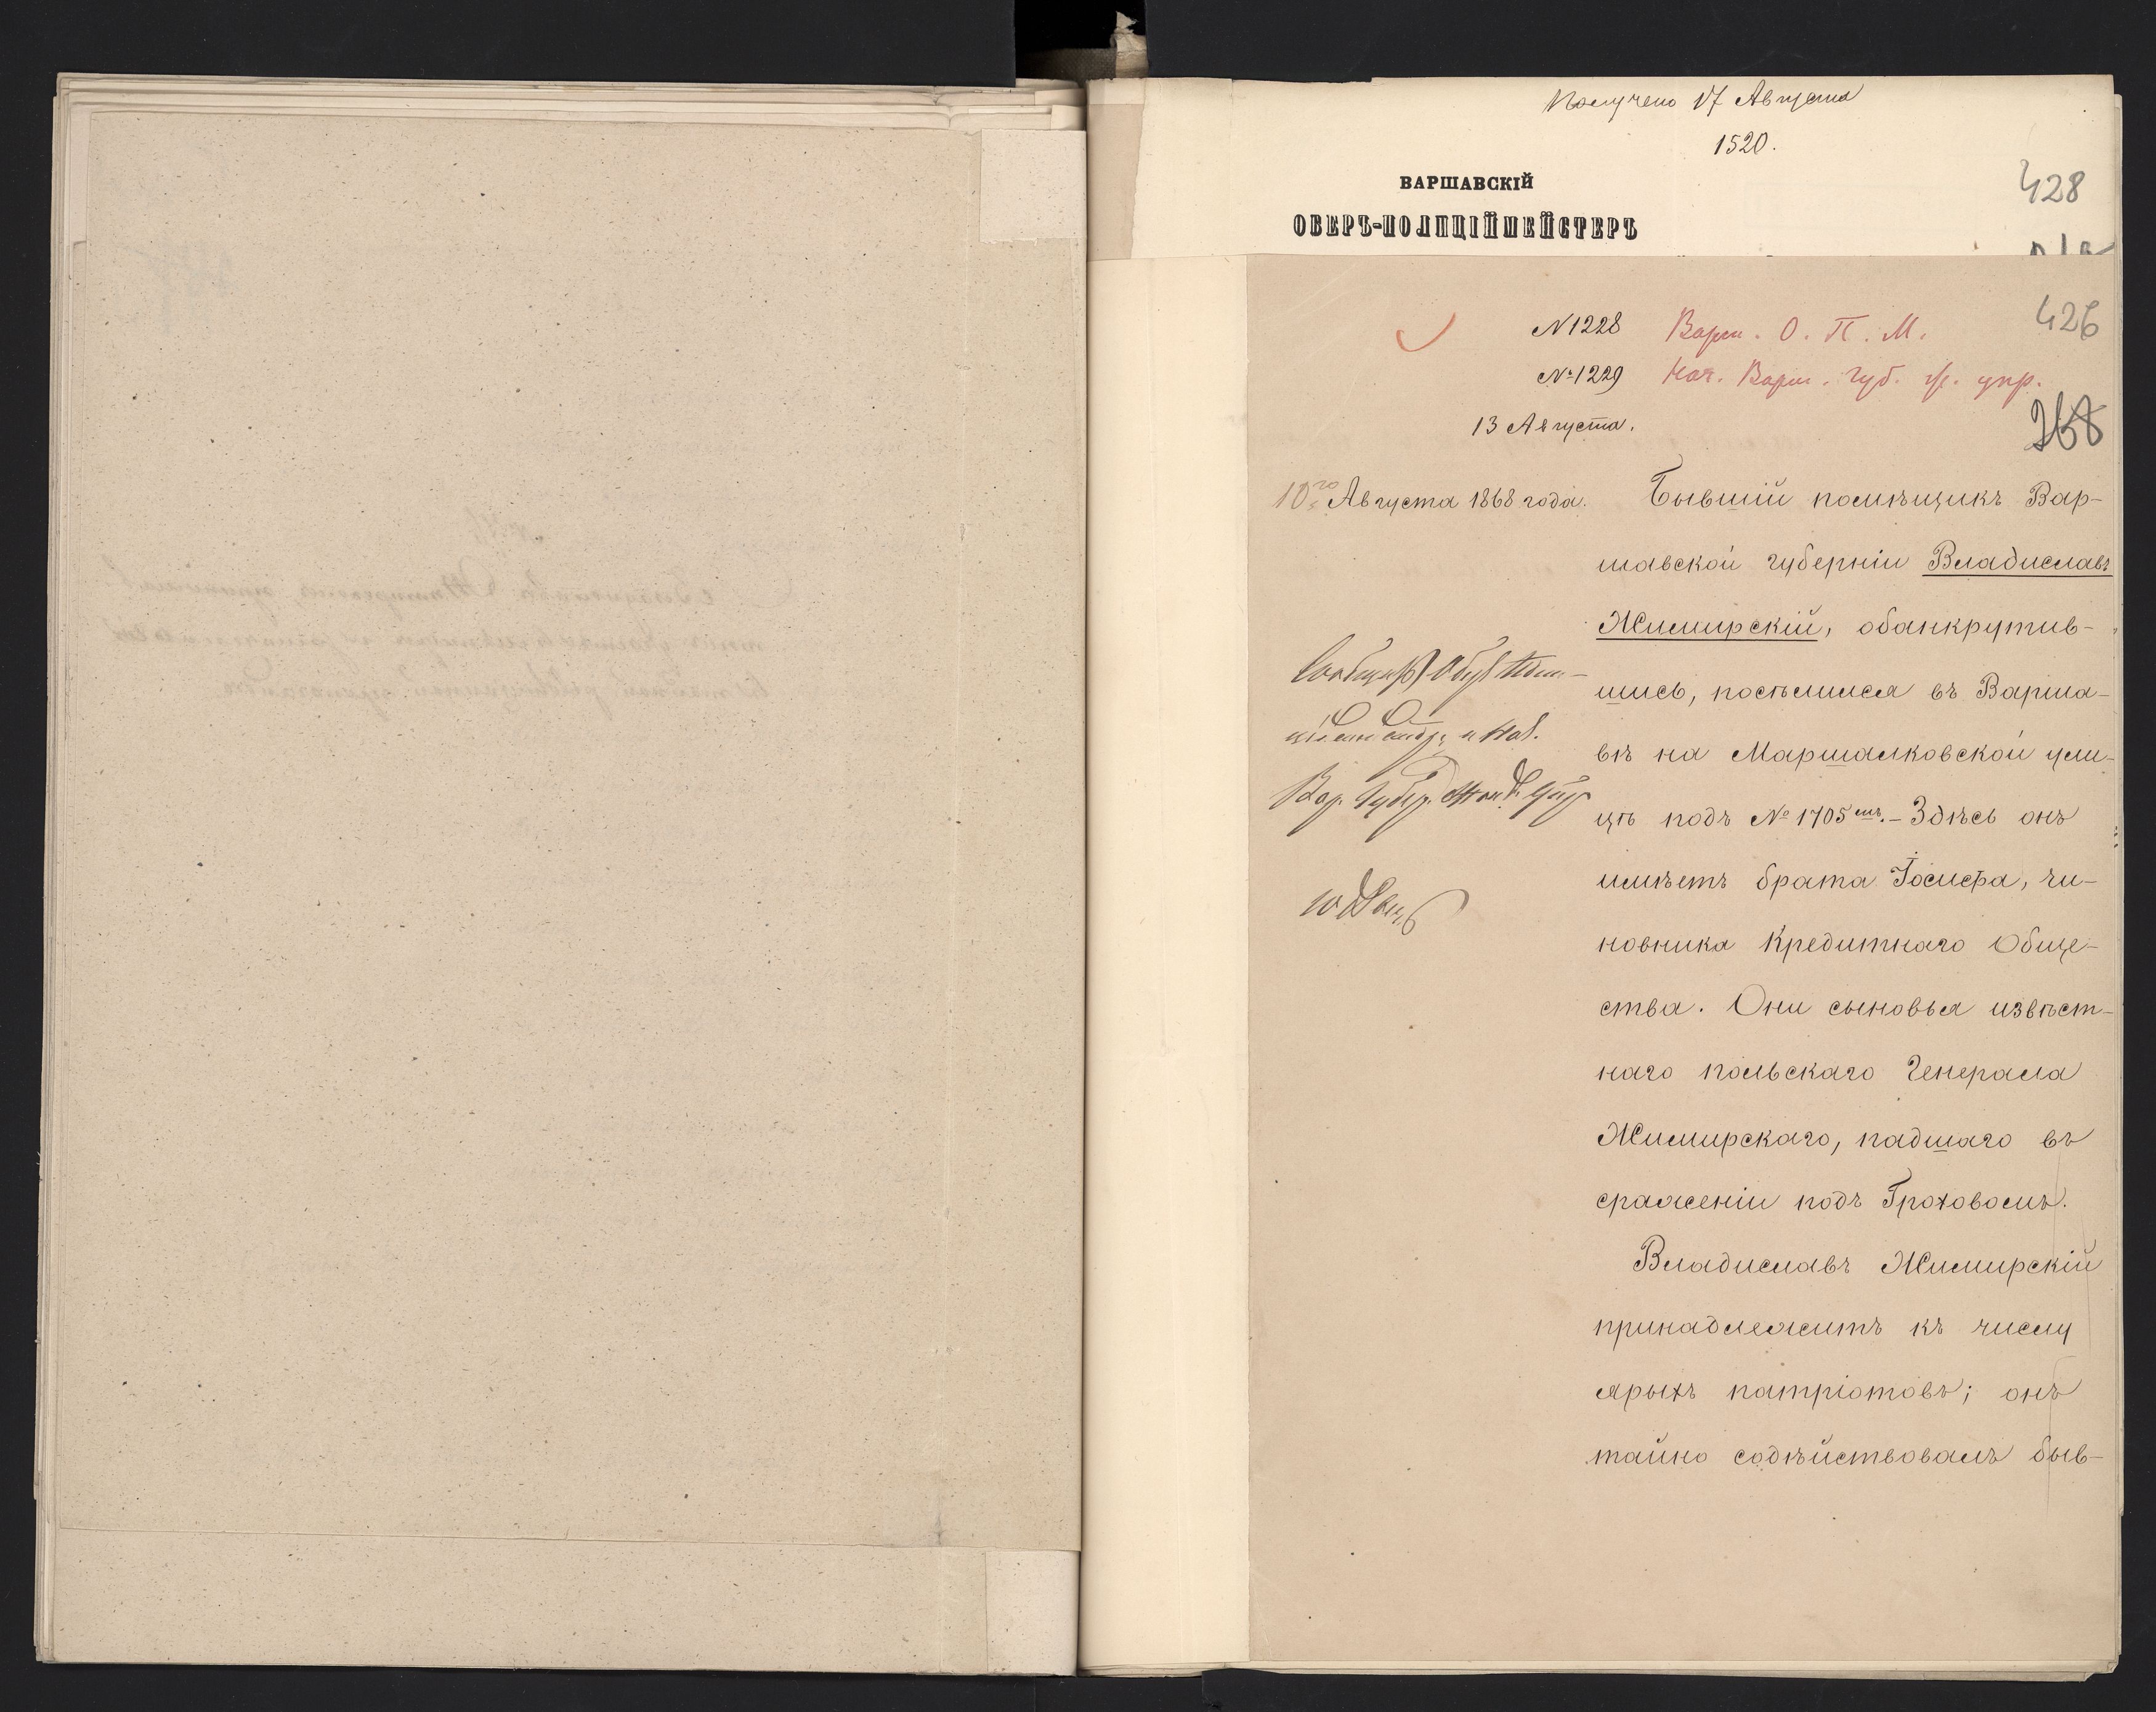 Получено 17 Августа
1520.
ВАРШАВСКІЙ
ОБЕРЪ-ПОЛИЦІЙМЕЙСТЕРЪ
428
426
№1228 Варш. О. П. М.
№1229 Нач. Варш. Губ. ж. упр.
13 Августа.
268
10го Августа 1868 года.
Бывшій помѣщикъ Вар-
шавской губерніи Владиславъ
Жимирскій, обанкрутив-
шись, поселился въ Варша-
вѣ на Маршалковской ули-
цѣ подъ № 1705емъ. – Здѣсь онъ
имѣетъ брата Іосифа, чи-
новника Кредитнаго Обще-
ства. Они сыновья извѣст-
наго польскаго Генерала
Жимирскаго, падшаго въ
сраженіи подъ Гроховомъ.
Владиславъ Жимирскій
принадлежитъ къ числу
ярыхъ патріотовъ; онъ
тайно содѣйствовалъ быв-
и Нач.
Вар. Губер. Жан. Упр
10 Авг